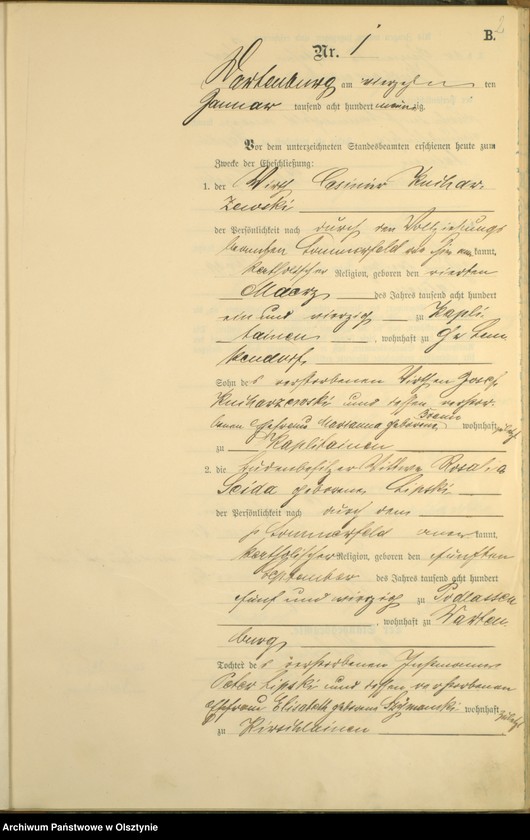 2
B.
Nr. 1
Wartenburg am vierzehn ten
Januar tausend acht hundert neunzig.
Vor dem unterzeichneten Standesbeamten erschienen heute zum
Zwecke der Eheschließung:
1. der Wirth Casimir Knihar-
zewski
der Persönlichkeit nach durch den Vollziehungs
beamten Sommerfeld kannt,
katholischer Religion, geboren den vierten
Maerz des Jahres tausend acht hundert
ein und vierzig zu Kapli
tainen, wohnhaft zu Gr Lem
kendorf,
Sohn des verstorbenen Wirthen Josef
Kniharzewski und dessen verstor-
benen Ehefrau Marianna geborene wohnhaft zuletzt
zu Kaplitainen
2. die Budenbesitzer Wittwe Rosalia
Seida geborene Lipski
der Persönlichkeit nach durch den
p Sommerfeld aner kannt,
katholischer Religion, geboren den fünften
September des Jahres tausend acht hundert
fünf und vierzig zu Podlassen
, wohnhaft zu Warten
burg
Tochter des verstorbenen Instmanns
Peter Lipski und dessen verstorbenen
Ehefrau Elisabeth geborene Szymanski wohnhaft zuletzt
zu Kirschlainen
Archiwum Państwowe w Olsztynie